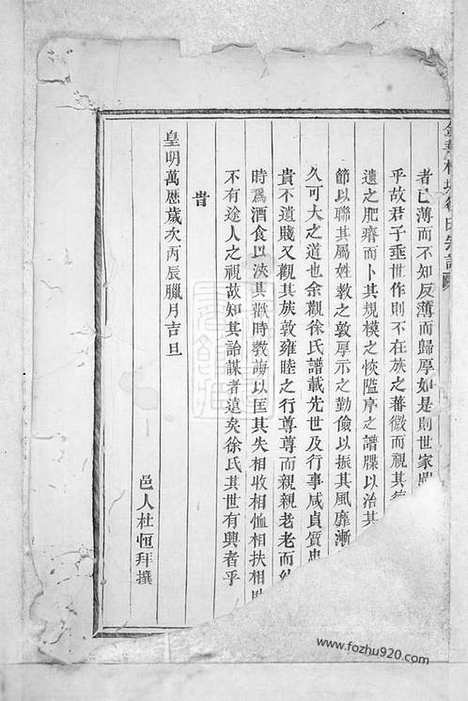 者已薄而不知反薄而歸厚如是則世家
乎故君子垂世作則不在族之蕃微而視其
遺之肥瘠而卜其規模之恢隘序之譜牒以治其
節以聯其屬姓教之敦厚示之勤儉以振其風靡漸
久可大之道也余觀徐氏譜載先世及行事咸貞質忠
貴不遺賤又觀其族敦雍睦之行尊尊而親親老老而幼
時爲酒食以浹其歡時教誨以匡其失相收相恤相扶相
不有途人之視故知其詒謀者遠矣徐氏其世有興者乎
旹
皇明萬歷歲次丙辰臘月吉旦
邑人杜恒拜撰
www.fozhu920.com